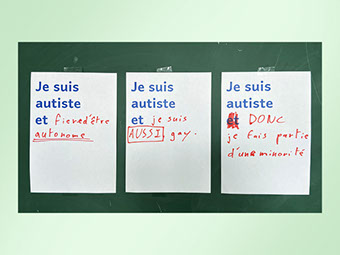 Je suis
autiste
et fiere d'être
autonome
Je suis
autiste
et je suis
AUSSI gay.
Je suis
autiste
DONC
je fais partie
d'une minorité